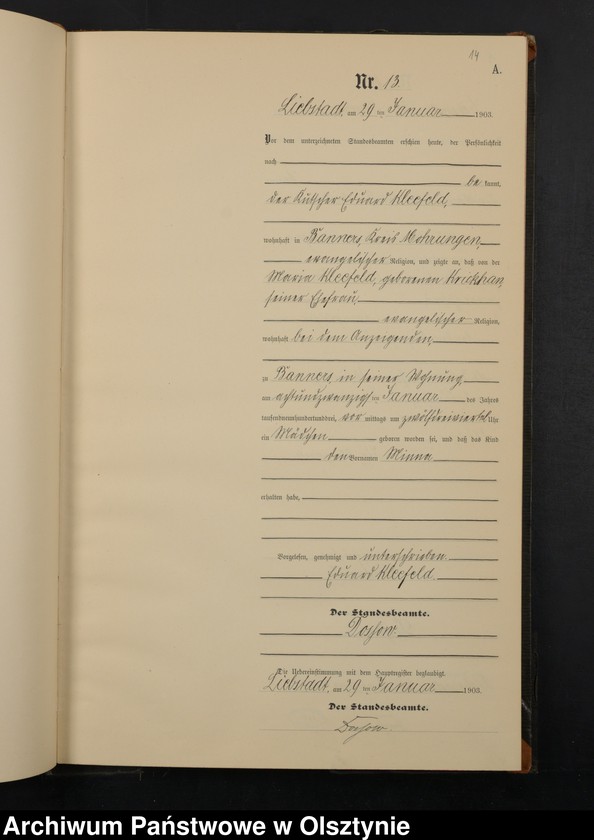 14
A.
Nr. 13.
Liebstadt, am 29ten Januar 1903.
Vor dem unterzeichneten Standesbeamten erschien heute, der Persönlichkeit
nach
be kannt,
der Kutscher Eduard Kleefeld,
wohnhaft in Banners, Kreis Mohrungen,
evangelischer Religion, und zeigte an, daß von der
Maria Kleefeld, geborenen
seiner Ehefrau,
evangelischer Religion,
wohnhaft bei dem Anzeigenden,
zu Banners, in seiner Wohnung,
am achtundzwanzigsten Januar des Jahres
tausendneunhundertunddrei, vor mittags um zwölfdreiviertel Uhr
ein Mädchen geboren worden sei, und daß das Kind
den Vornamen Minna
erhalten habe,
Vorgelesen, genehmigt und unterschrieben.
Eduard Kleefeld.
Der Standesbeamte.
Dossow.
Die Uebereinstimmung mit dem Hauptregister beglaubigt.
Liebstadt, am 29ten Januar 1903.
Der Standesbeamte.
Dossow.
Archiwum Państwowe w Olsztynie